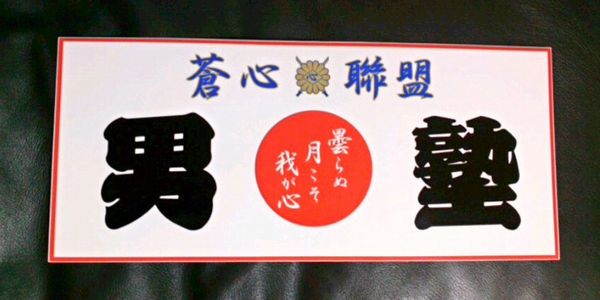 蒼心 心 聯盟
男 塾
曇らぬ
月こそ
我が心